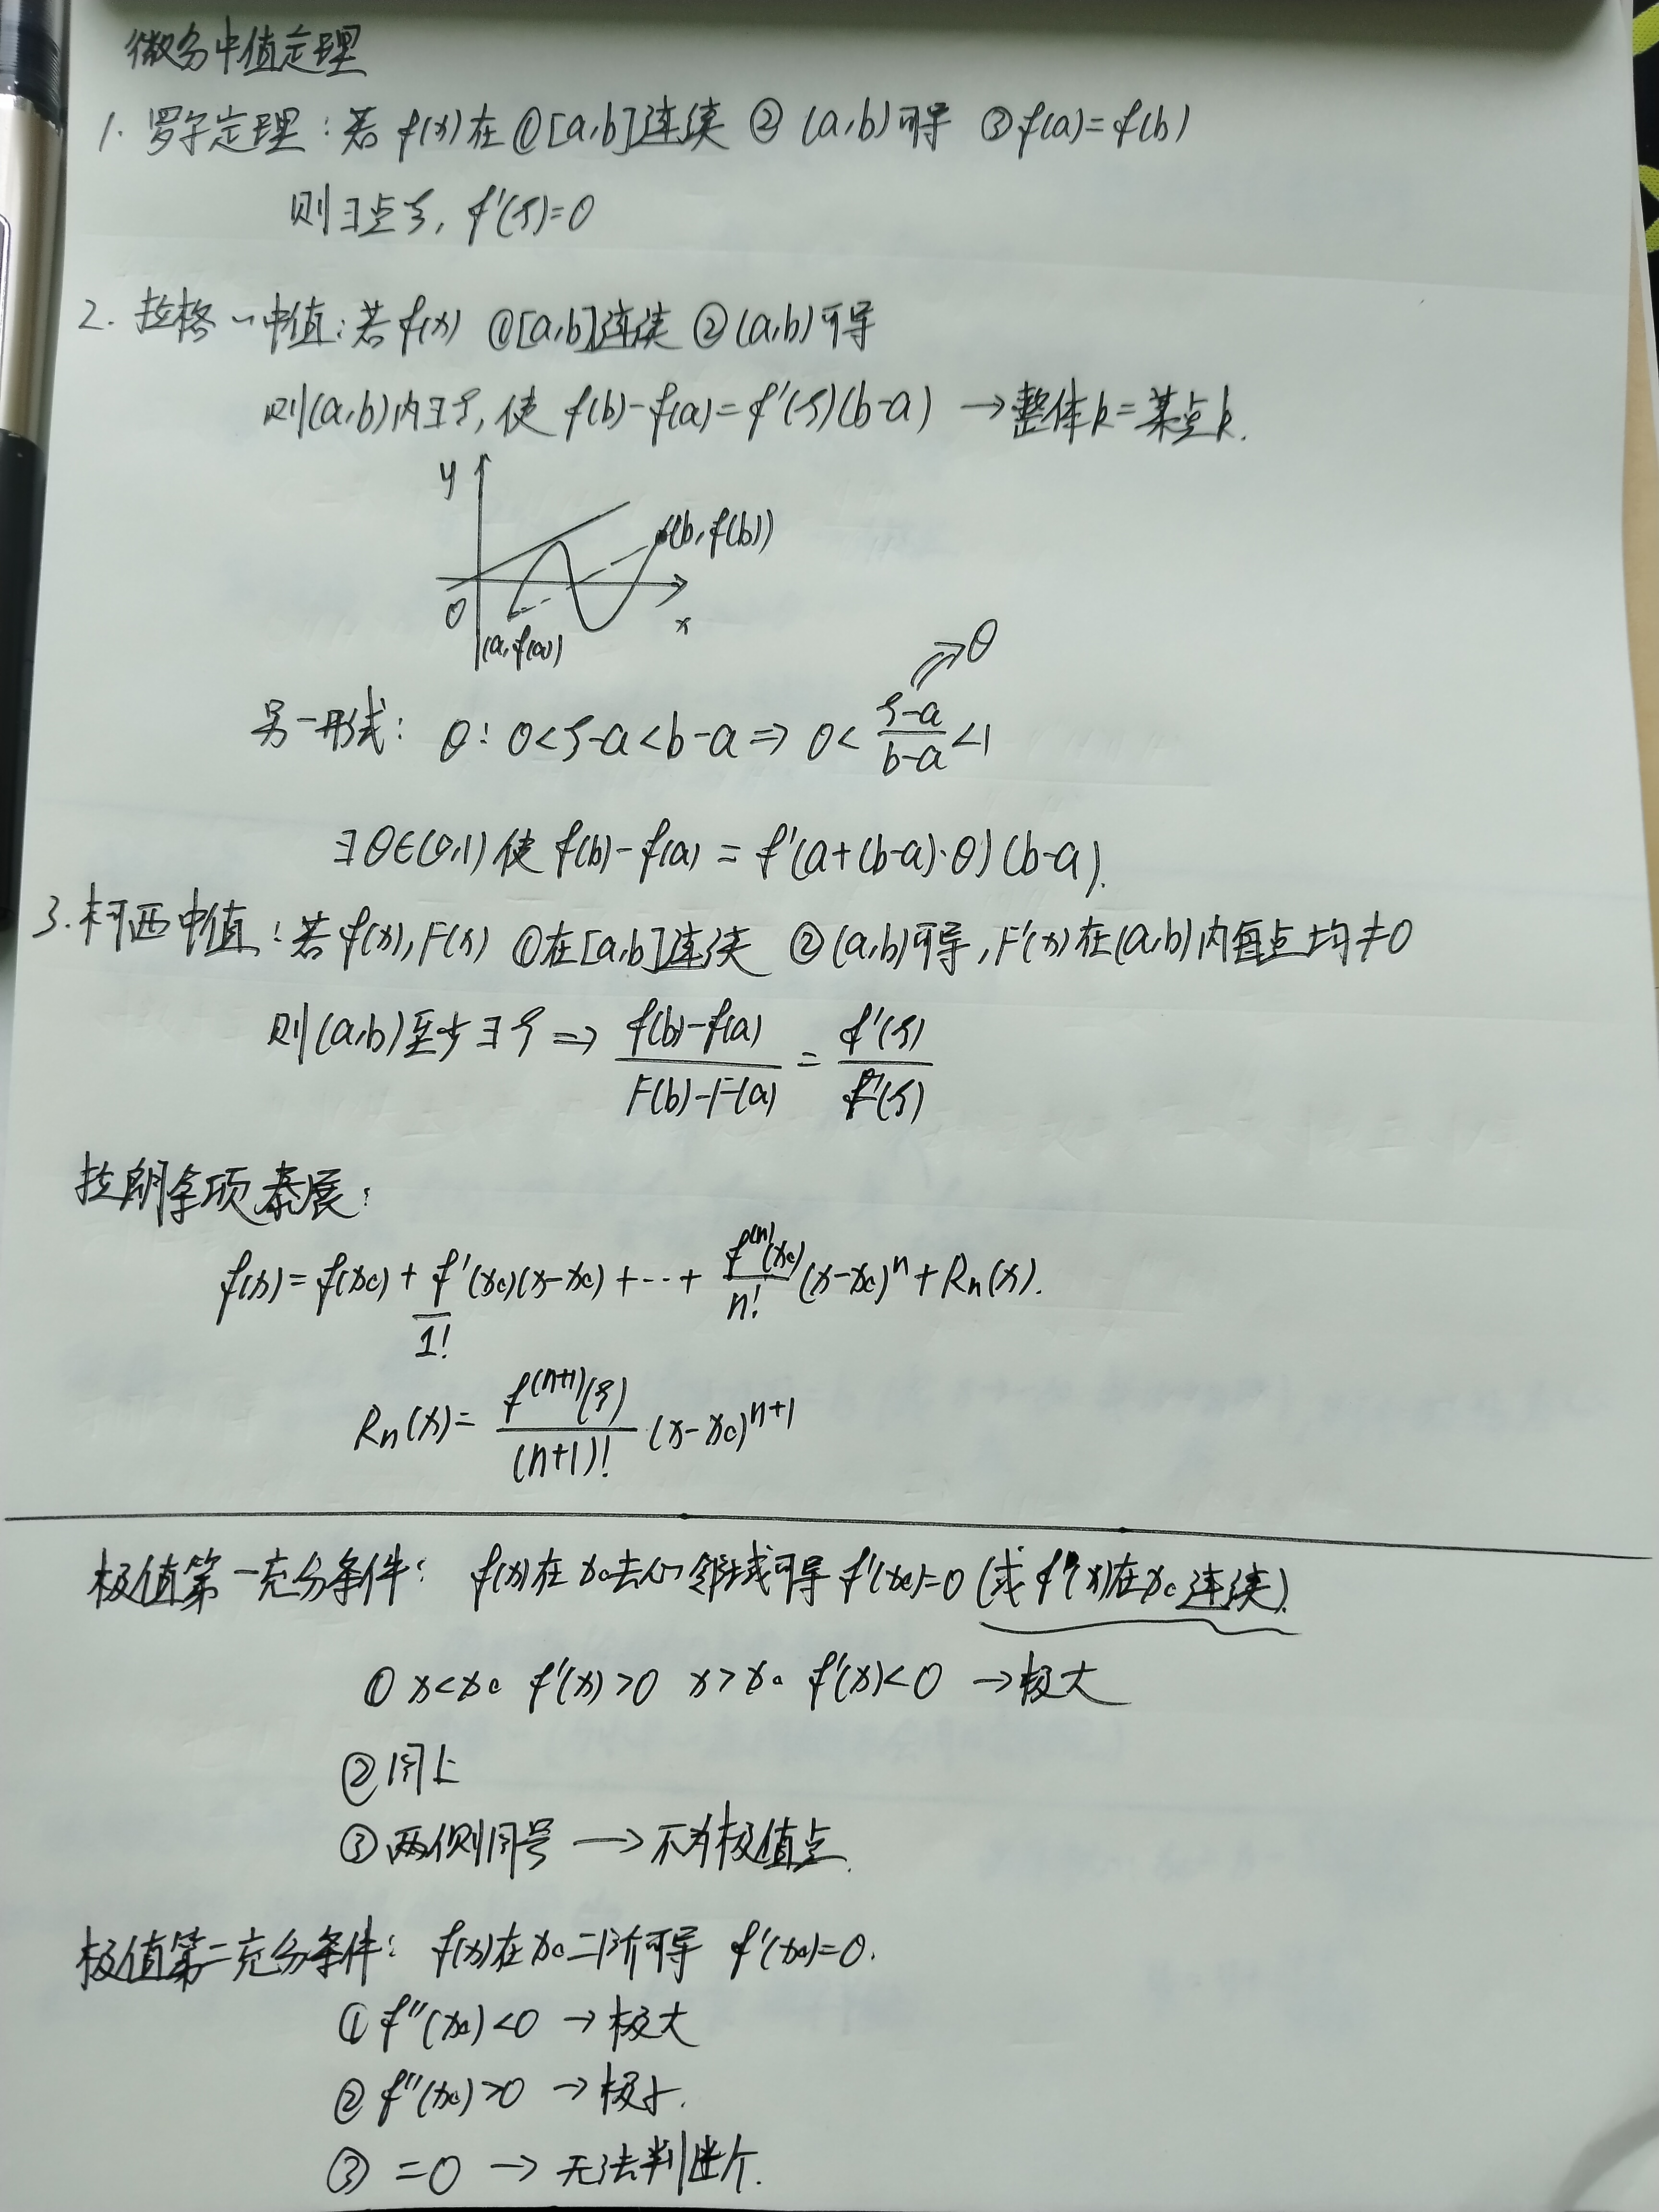 微分中值定理
1. 罗尔定理：若 f(x) 在 ①[a,b]连续 ② (a,b)可导 ③ f(a)=f(b)
则∃点ξ, f'(ξ)=0
2. 拉格~中值：若 f(x) ①[a,b]连续 ②(a,b)可导
则(a,b)内∃ξ, 使 f(b)-f(a)=f'(ξ)(b-a) → 整体k=某点k.
y
(b, f(b))
0
x
(a, f(a))
θ
另一形式： θ: 0<ξ-a<b-a ⇒ 0< (ξ-a)/(b-a) <1
∃θ∈(0,1) 使 f(b)-f(a) = f'(a+(b-a)·θ)(b-a).
3. 柯西中值：若 f(x), F(x) ①在[a,b]连续 ②(a,b)可导, F'(x)在(a,b)内每点均≠0
则(a,b)至少∃ξ ⇒ (f(b)-f(a))/(F(b)-F(a)) = f'(ξ)/F'(ξ)
拉朗余项泰展：
f(x)=f(x₀)+ f'(x₀)/1! (x-x₀)+···+ f⁽ⁿ⁾(x₀)/n! (x-x₀)ⁿ+Rn(x).
Rn(x)= f⁽ⁿ⁺¹⁾(ξ)/(n+1)! (x-x₀)ⁿ⁺¹
极值第一充分条件： f(x)在x₀去心邻域可导 f'(x₀)=0 (或 f(x)在x₀连续).
① x<x₀ f'(x)>0 x>x₀ f'(x)<0 → 极大
②同上
③两侧同号 → 不为极值点.
极值第二充分条件： f(x)在x₀二阶可导 f'(x₀)=0.
① f''(x₀)<0 → 极大
② f''(x₀)>0 → 极小.
③ =0 → 无法判断.